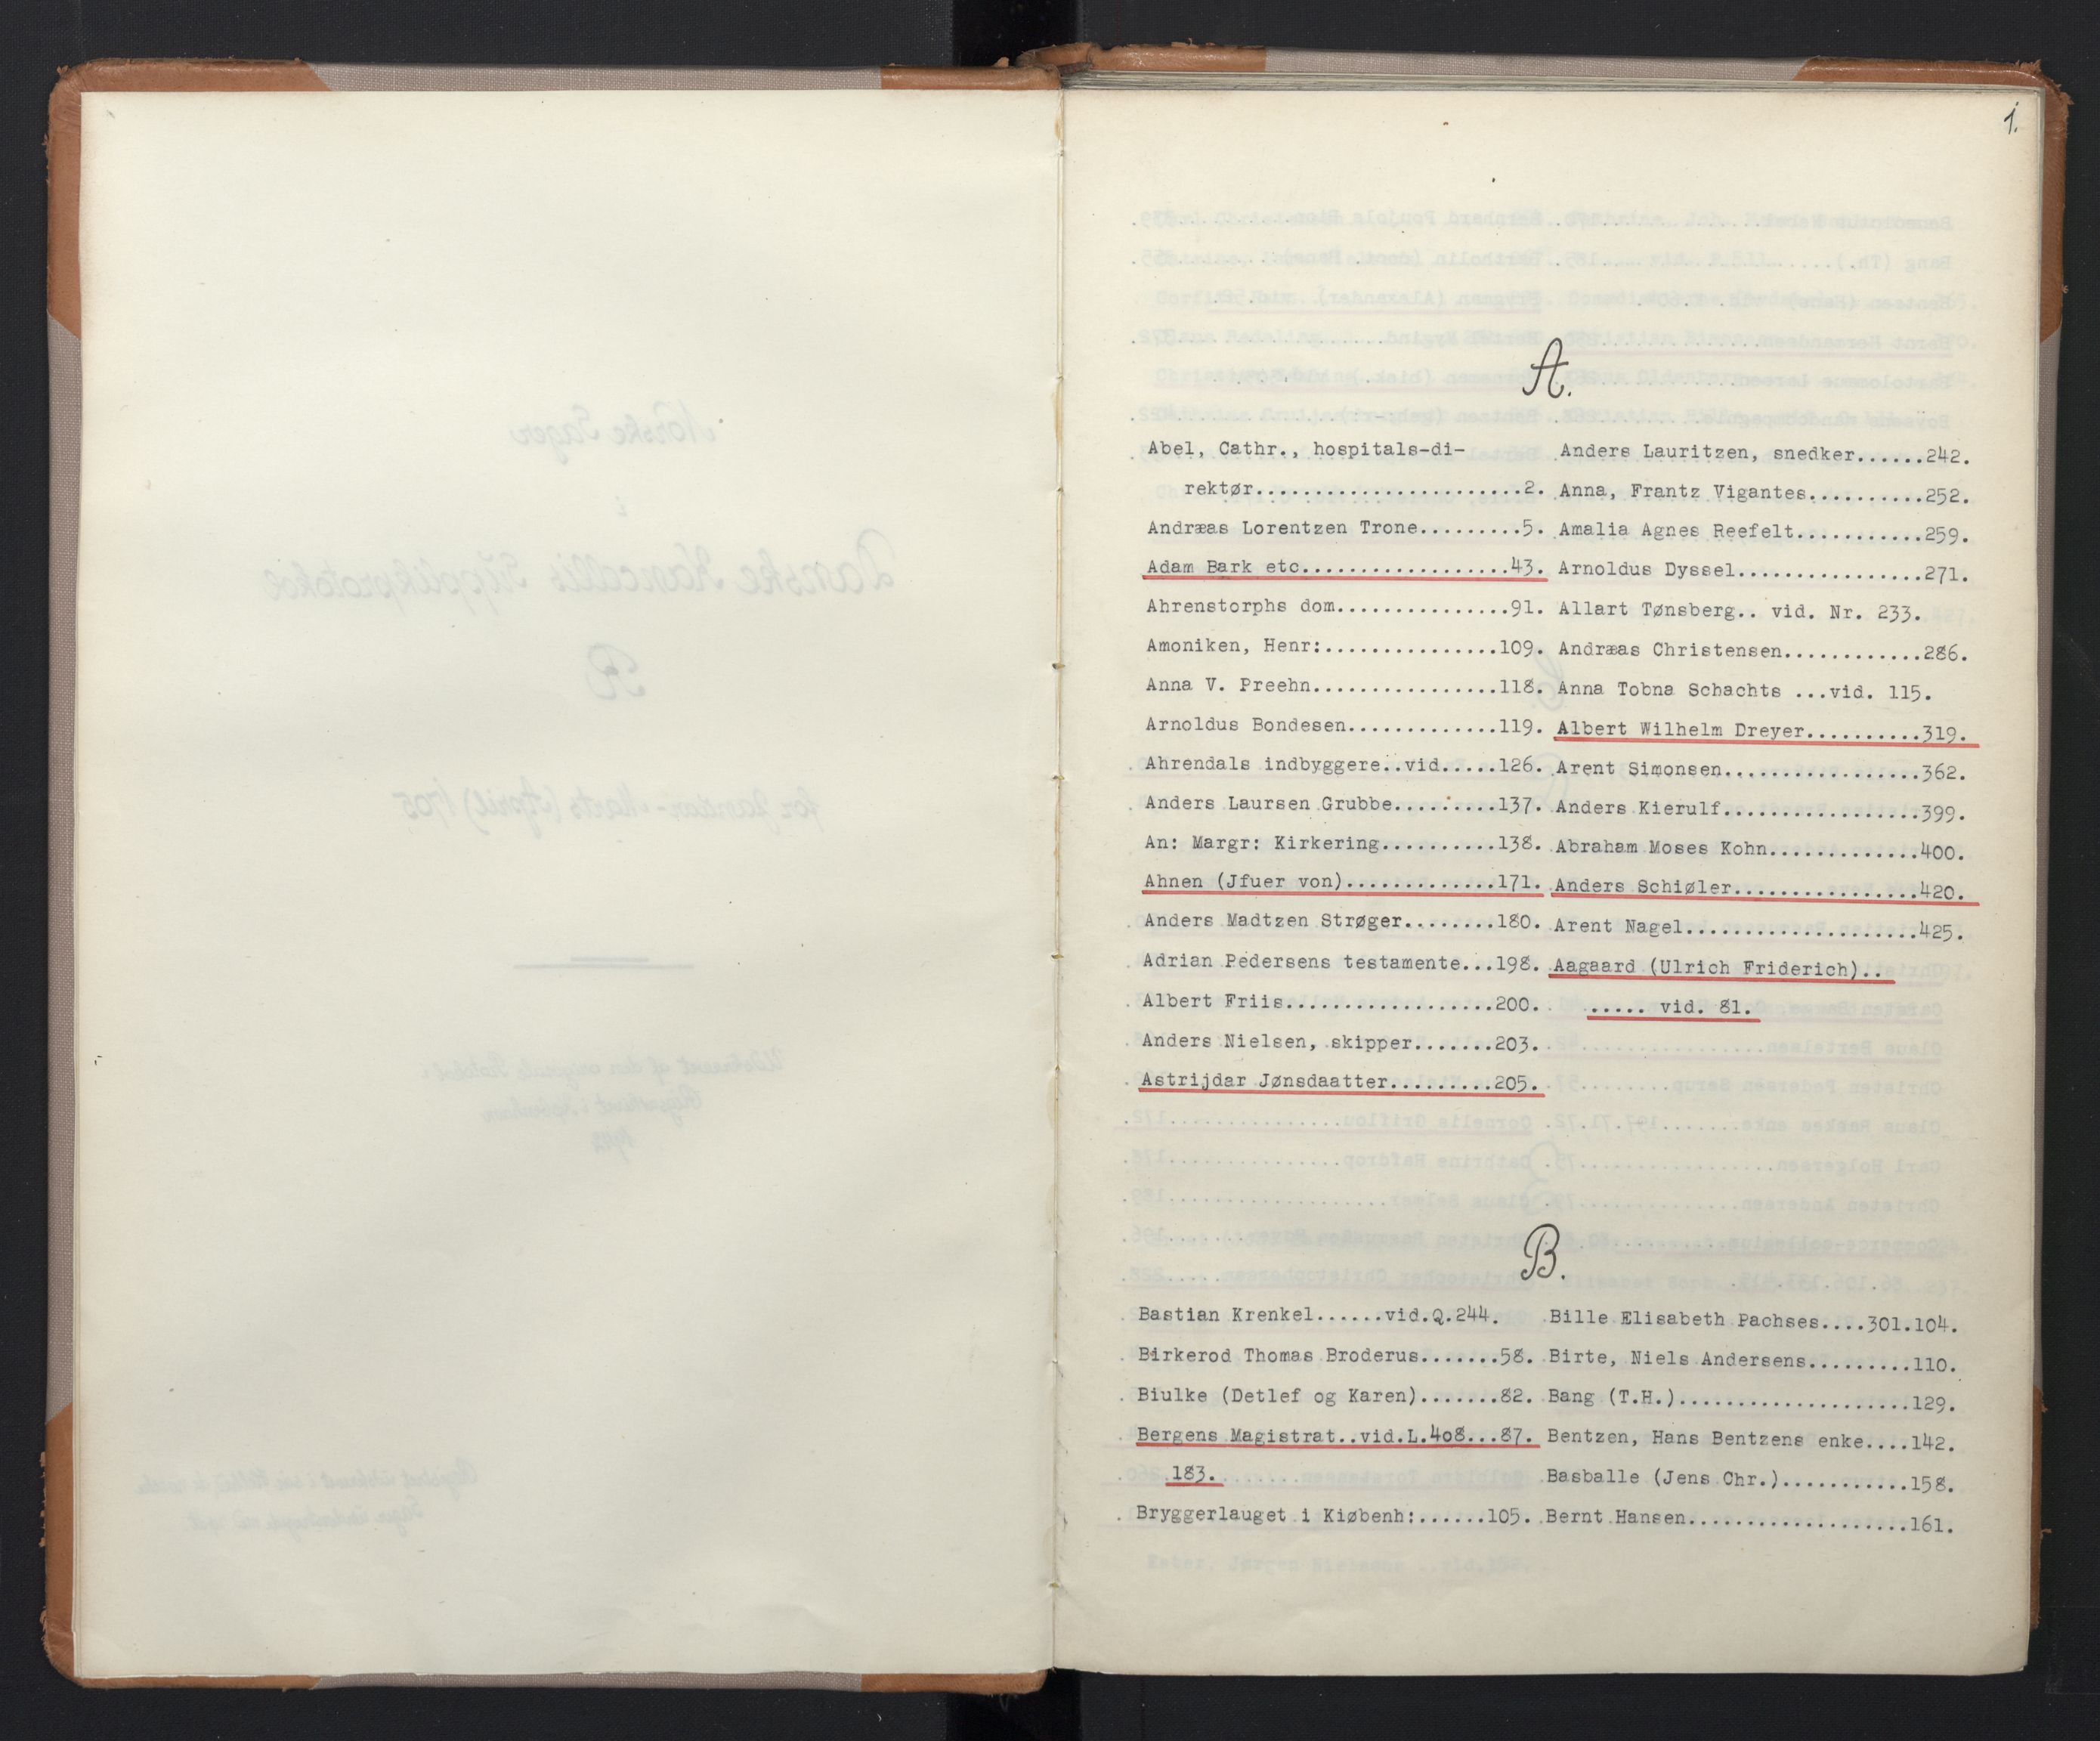 1.
A.
Abel, Cathr., hospitals-di-
rektør.......................2.
Andræas Lorentzen Trone.........5.
Adam Bark etc..................43.
Ahrenstorphs dom...............91.
Amoniken, Henr:...............109.
Anna V. Preehn................118.
Arnoldus Bondesen.............119.
Ahrendals indbyggere..vid.....126.
Anders Laursen Grubbe.........137.
An: Margr: Kirkering..........138.
Ahnen (Jfuer von).............171.
Anders Madtzen Strøger........180.
Adrian Pedersens testamente...198.
Albert Friis..................200.
Anders Nielsen, skipper.......203.
Astrijdar Jønsdaatter.........205.
Anders Lauritzen, snedker......242.
Anna, Frantz Vigantes..........252.
Amalia Agnes Reefelt...........259.
Arnoldus Dyssel................271.
Allart Tønsberg.. vid. Nr. 233.
Andræas Christensen............286.
Anna Tobna Schachts ...vid. 115.
Albert Wilhelm Dreyer..........319.
Arent Simonsen.................362.
Anders Kierulf.................399.
Abraham Moses Kohn.............400.
Anders Schiøler................420.
Arent Nagel....................425.
Aagaard (Ulrich Friderich)..
..... vid. 81.
B.
Bastian Krenkel......vid.Q.244.
Birkerod Thomas Broderus.......58.
Biulke (Detlef og Karen).......82.
Bergens Magistrat..vid.L.408...87.
183.
Bryggerlauget i Kiøbenh:......105.
Bille Elisabeth Pachses....301.104.
Birte, Niels Andersens.........110.
Bang (T.H.)....................129.
Bentzen, Hans Bentzens enke....142.
Basballe (Jens Chr.)...........158.
Bernt Hansen...................161.